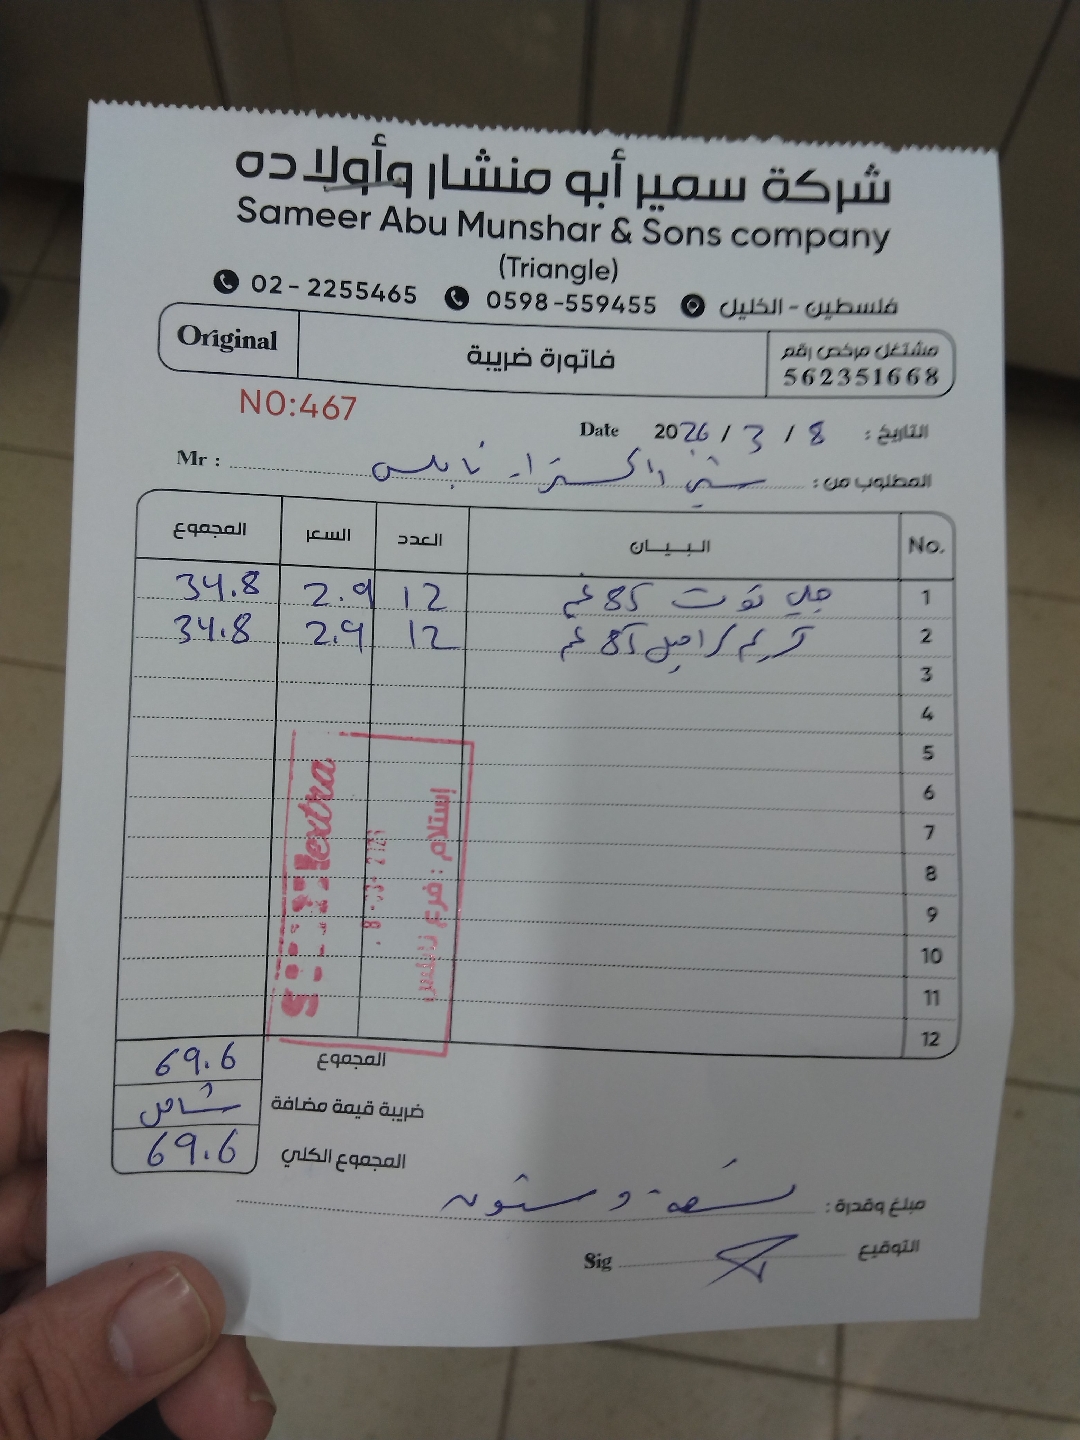 شركة سمير أبو منشار وأولاده
Sameer Abu Munshar & Sons company
(Triangle)
02 - 2255465 0598 -559455 فلسطين - الخليل
Original فاتورة ضريبة مشتغل مرخص رقم
562351668
NO:467
Date 2026 / 3 / 8 التاريخ :
Mr : المطلوب من : اكسترا نابلس
No. البيــان العدد السعر المجموع
1 جلي توت 85 غم 12 2.9 34.8
2 كريم كراميل 85 غم 12 2.9 34.8
3
4
5
6
7
8
9
10
11
12
extra
إستلام : فرع نابلس
المجموع 69.6
ضريبة قيمة مضافة شامل
المجموع الكلي 69.6
مبلغ وقدرة : تسعة و ستون
التوقيع Sig